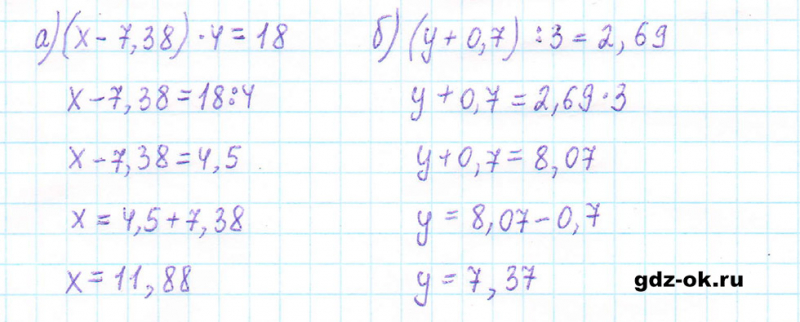 а) (x - 7,38) · 4 = 18
x - 7,38 = 18 : 4
x - 7,38 = 4,5
x = 4,5 + 7,38
x = 11,88
б) (y + 0,7) : 3 = 2,69
y + 0,7 = 2,69 · 3
y + 0,7 = 8,07
y = 8,07 - 0,7
y = 7,37
gdz-ok.ru